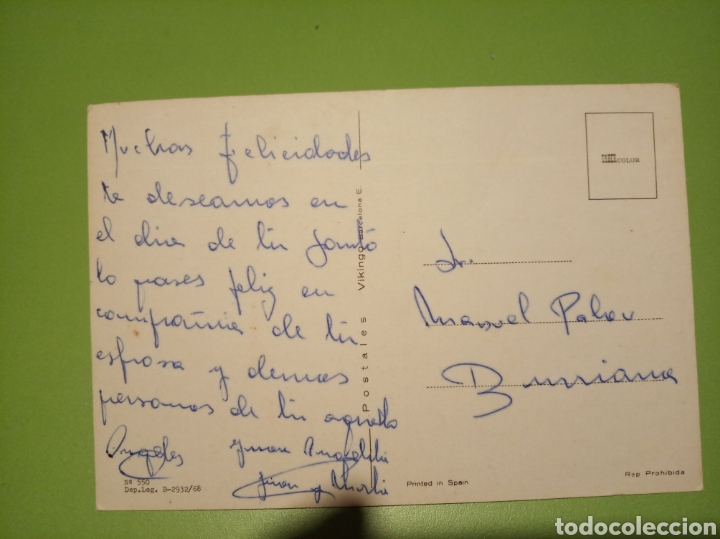 Muchas felicidades
te deseamos en
el dia de tu santo
lo pases feliz en
compañia de tu
esposa y demas
personas de tu agrado
Angeles Juan
y
Nº 550
Dep.Leg. B-2932/68
Postales Vikingo Barcelona E.
COLOR
Sr.
Manuel Palau
Burriana
Printed in Spain
Rep Prohibida
todocoleccion